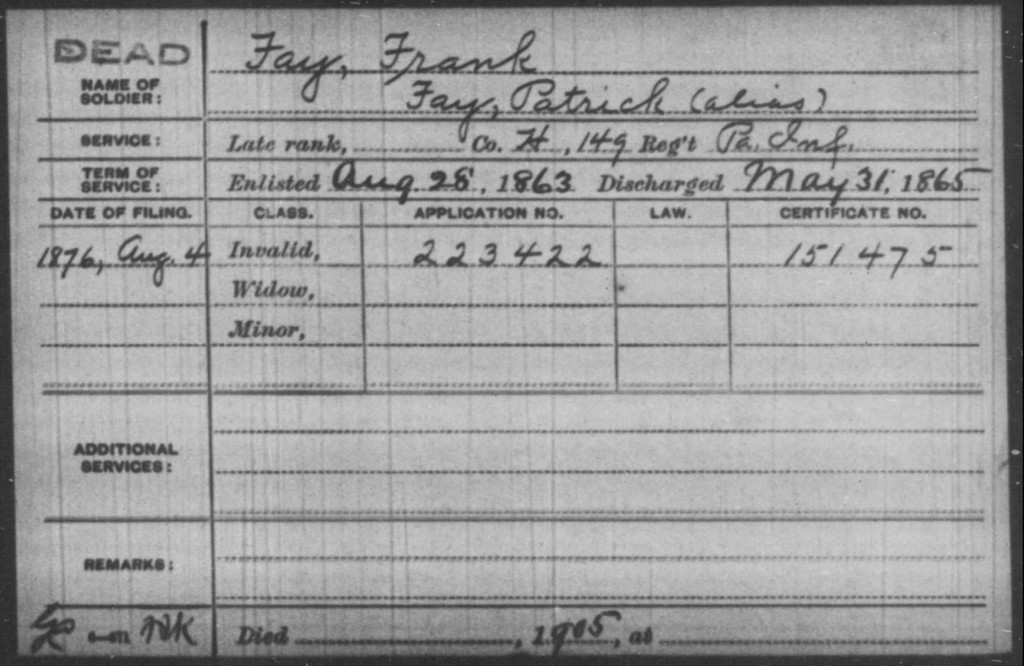 DEAD
NAME OF SOLDIER:
Fay, Frank
Fay, Patrick (alias)
SERVICE: Late rank, Co. H, 149 Reg't Pa. Inf.
TERM OF SERVICE: Enlisted Aug. 28, 1863 Discharged May 31, 1865
DATE OF FILING. CLASS. APPLICATION NO. LAW. CERTIFICATE NO.
1876, Aug. 4 Invalid, 223422 151475
Widow,
Minor,
ADDITIONAL SERVICES:
REMARKS:
Died , 1905, at